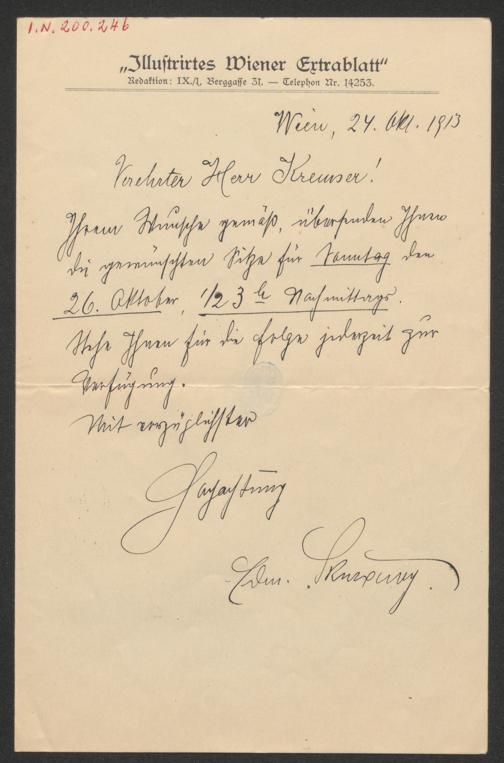 I.N. 200.246
„Illustrirtes Wiener Extrablatt“
Redaktion: IX./1, Berggasse 31. — Telephon Nr. 14253.
Wien, 24. Okt. 1913
Verehrter Herr Kremser!
Ihrem Wunsche gemäß, übersenden Ihnen
die gewünschten Sitze für Sonntag den
26. Oktober, 1/2 3 h Nachmittags.
Stehe Ihnen für die Folge jederzeit zur
Verfügung.
Mit vorzüglichster
Hochachtung
Edm.